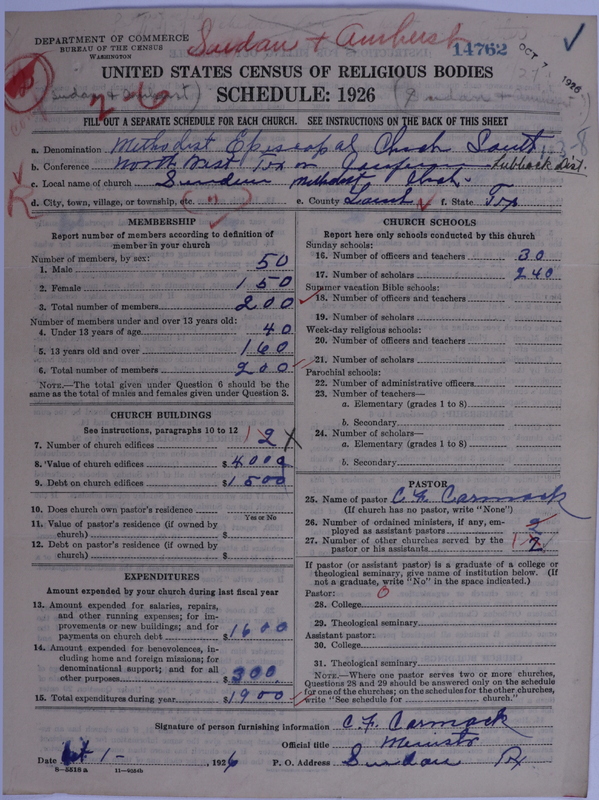 DEPARTMENT OF COMMERCE
BUREAU OF THE CENSUS
WASHINGTON
Sudan + Amherst
14762
OCT 7 1926
UNITED STATES CENSUS OF RELIGIOUS BODIES
(Sudan + Amherst)
26
SCHEDULE: 1926
FILL OUT A SEPARATE SCHEDULE FOR EACH CHURCH. SEE INSTRUCTIONS ON THE BACK OF THIS SHEET
a. Denomination Methodist Episcopal Church South
b. Conference North West Tex Conference Lubbock Dist.
c. Local name of church Sudan Methodist Church
d. City, town, village, or township, etc. "
e. County Lamb
f. State Tex
MEMBERSHIP
Report number of members according to definition of member in your church
Number of members, by sex:
1. Male 50
2. Female 150
3. Total number of members 200
Number of members under and over 13 years old:
4. Under 13 years of age 40
5. 13 years old and over 160
6. Total number of members 200
NOTE.—The total given under Question 6 should be the same as the total of males and females given under Question 3.
CHURCH BUILDINGS
See instructions, paragraphs 10 to 12
7. Number of church edifices 1 2
8. Value of church edifices $4000
9. Debt on church edifices $1500
10. Does church own pastor's residence?
Yes or No
11. Value of pastor's residence (if owned by church) $
12. Debt on pastor's residence (if owned by church) $
EXPENDITURES
Amount expended by your church during last fiscal year
13. Amount expended for salaries, repairs, and other running expenses; for improvements or new buildings; and for payments on church debt $1600
14. Amount expended for benevolences, including home and foreign missions; for denominational support; and for all other purposes $300
15. Total expenditures during year $1900
CHURCH SCHOOLS
Report here only schools conducted by this church
Sunday schools:
16. Number of officers and teachers 30
17. Number of scholars 240
Summer vacation Bible schools:
18. Number of officers and teachers
19. Number of scholars
Week-day religious schools:
20. Number of officers and teachers
21. Number of scholars
Parochial schools:
22. Number of administrative officers
23. Number of teachers—
a. Elementary (grades 1 to 8)
b. Secondary
24. Number of scholars—
a. Elementary (grades 1 to 8)
b. Secondary
PASTOR
25. Name of pastor C. F. Carmack
(If church has no pastor, write "None")
26. Number of ordained ministers, if any, employed as assistant pastors 2
27. Number of other churches served by the pastor or his assistants 1 2
If pastor (or assistant pastor) is a graduate of a college or theological seminary, give name of institution below. (If not a graduate, write "No" in the space indicated.)
Pastor: 0
28. College
29. Theological seminary
Assistant pastor:
30. College
31. Theological seminary
NOTE.—Where one pastor serves two or more churches, Questions 28 and 29 should be answered only on the schedule for one of the churches; on the schedules for the other churches, write "See schedule for church."
Signature of person furnishing information C. F. Carmack
Official title Minister
Date Oct 1-, 1926
P. O. Address Sudan Tex
8-5518 a 11-9024b